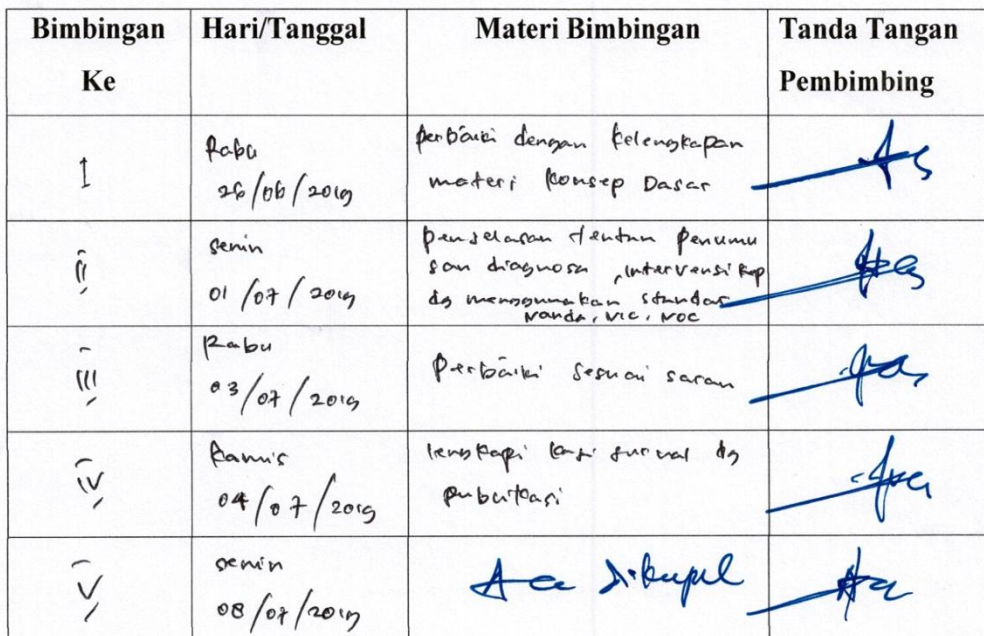 Bimbingan Ke
Hari/Tanggal
Materi Bimbingan
Tanda Tangan Pembimbing
I
Rabu
26/06/2019
perbaiki dengan kelengkapan
materi konsep Dasar
II
Senin
01/07/2019
penjelasan tentan penumu
san diagnosa, intervensi kep
dg menggunakan standar
Nanda, NIC, NOC
III
Rabu
03/07/2019
Perbaiki sesuai saran
IV
Kamis
04/07/2019
lengkapi jurnal dg
V
Senin
08/07/2019